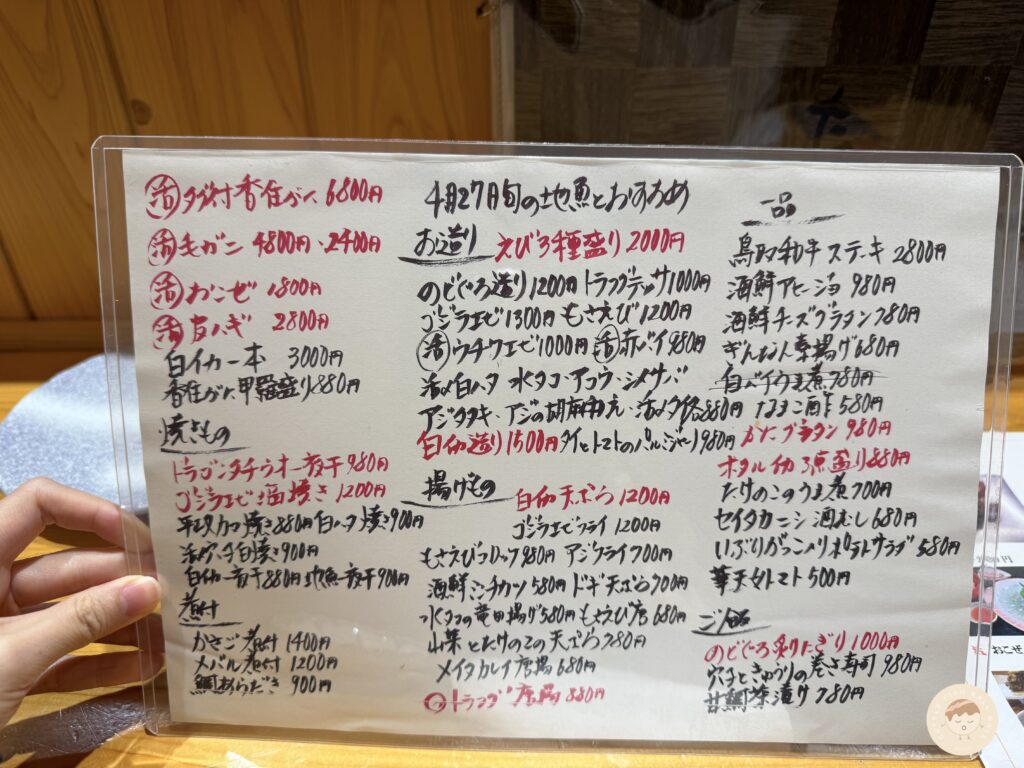 活 タグ付香住がに 6800円
活 毛ガニ 4800円・2400円
活 おこぜ 1800円
活 皮ハギ 2800円
白イカ一本 3000円
香住がに甲羅盛り880円
焼きもの
ドラゴンタチウオ一夜干980円
ゴジラエビ塩焼き1200円
焼き880円 白ハタ焼き900円
焼き900円
白イカ一夜干880円 地魚一夜干900円
煮付
かさご煮付 1400円
メバル煮付 1200円
鯛あらだき 900円
4月27日旬の地魚とおすすめ
お造り えび3種盛り2000円
のどぐろ造り1200円 トラフグテッサ1000円
ゴジラエビ1300円 もさえび1200円
活 ウチワエビ1000円 活 赤バイ980円
活〆白ハタ 水タコ・アコウ・シメサバ
アジタタキ・アジの胡麻和え・活〆 880円
白イカ造り1500円 タイとトマトのバルジャーノ980円
揚げもの 白イカ天ぷら1200円
ゴジラエビフライ1200円
もさえびコロッケ980円 アジフライ700円
海鮮ミンチカツ580円 ドギ天ぷら700円
水タコの竜田揚げ580円 もさえび唐680円
山菜とたけのこの天ぷら780円
メイタカレイ唐揚680円
トラフグ唐揚880円
一品
鳥取和牛ステーキ2800円
海鮮アヒージョ 980円
海鮮チーズグラタン780円
ぎんなん素揚げ680円
白バイうま煮780円
なまこ酢580円
かにグラタン980円
ホタルイカ3点盛り880円
たけのこのうま煮700円
セイタカニシ酒むし680円
いぶりがっこ入りポテトサラダ580円
華天女トマト500円
ご飯
のどぐろ炙りにぎり1000円
穴子ときゅうりの巻き寿司980円
甘鯛茶漬け780円
おこぜ